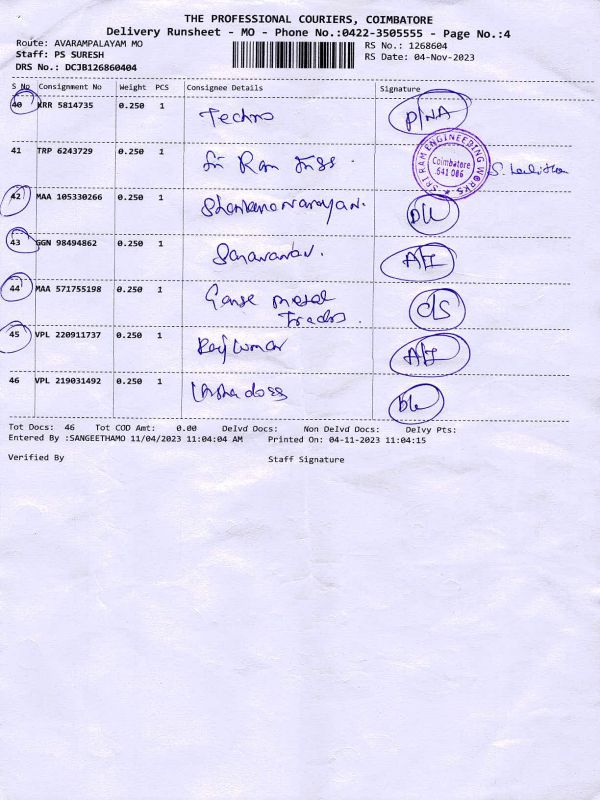 THE PROFESSIONAL COURIERS, COIMBATORE
Delivery Runsheet - MO - Phone No.:0422-3505555 - Page No.:4
Route: AVARAMPALAYAM MO
RS No.: 1268604
Staff: PS SURESH
RS Date: 04-Nov-2023
DRS No.: DCJB126860404
S No Consignment No Weight PCS Consignee Details Signature
40 KRR 5814735 0.250 1 Techno P/NA
41 TRP 6243729 0.250 1 Sri Ram
SRI RAM ENGINEERING WORKS
Coimbatore
641 006
42 MAA 105330266 0.250 1 Shankanarayan.
43 GGN 98494862 0.250 1 Saravanan.
44 MAA 571755198 0.250 1 metal
Trados.
45 VPL 220911737 0.250 1 Raj Kumar
46 VPL 219031492 0.250 1
Tot Docs: 46 Tot COD Amt: 0.00 Delvd Docs: Non Delvd Docs: Delvy Pts:
Entered By :SANGEETHAMO 11/04/2023 11:04:04 AM Printed On: 04-11-2023 11:04:15
Verified By Staff Signature